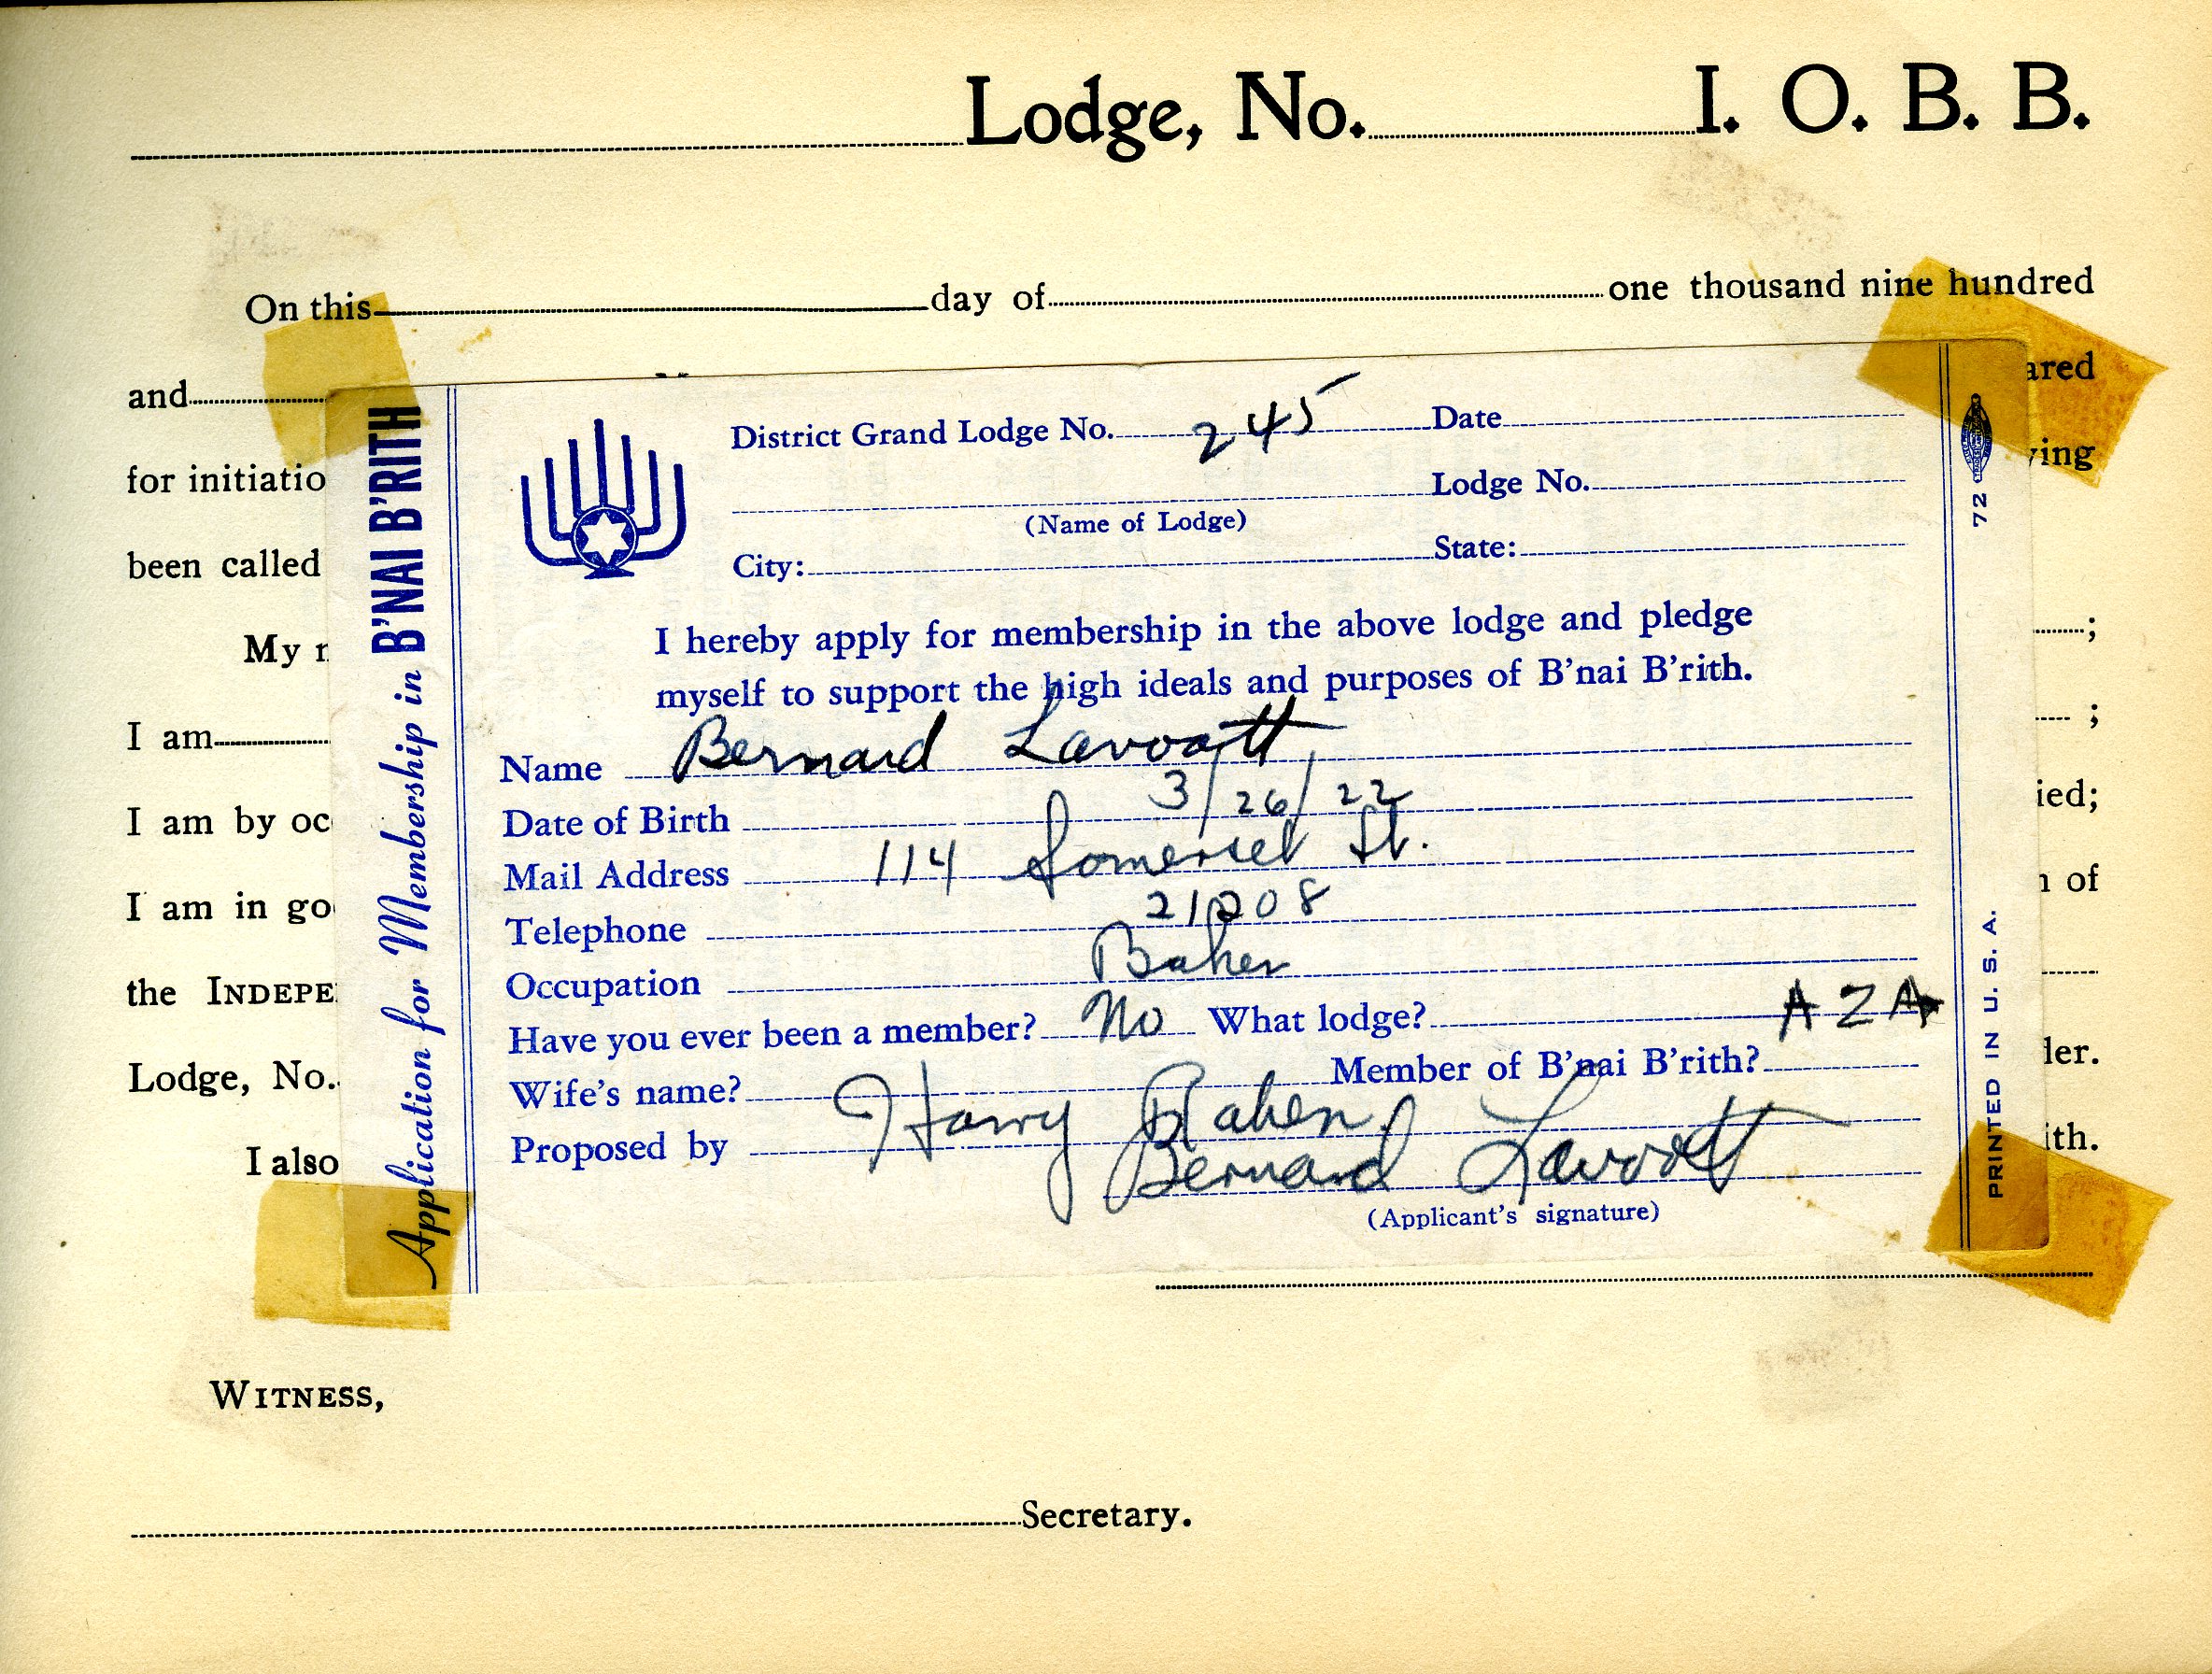 Lodge, No. I. O. B. B.
On this day of one thousand nine hundred
and ared
for initiatio ving
been called
My n ;
I am ;
I am by oc ied;
I am in go n of
the INDEPE
Lodge, No. ler.
I also ith.
WITNESS,
Secretary.
Application for Membership in B'NAI B'RITH
District Grand Lodge No. 245 Date
Lodge No.
(Name of Lodge)
City: State:
I hereby apply for membership in the above lodge and pledge
myself to support the high ideals and purposes of B'nai B'rith.
Name Bernard Lavoott
Date of Birth 3/26/22
Mail Address 114 Somerset St.
Telephone 21208
Occupation Baker
Have you ever been a member? No What lodge? AZA
Wife's name? Member of B'nai B'rith?
Proposed by Harry
Bernard Lavoott
(Applicant's signature)
72
PRINTED IN U. S. A.